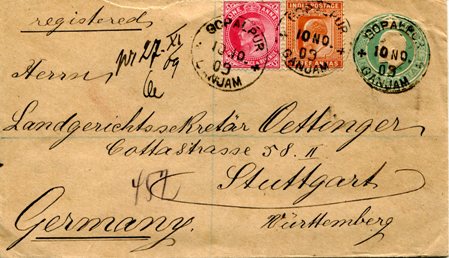 registered
pr 27. XI
09
GOPALPUR
10 NO.
09
GANJAM
INDIA POSTAGE
GOPALPUR
10 NO.
09
GANJAM
GOPALPUR
10 NO.
09
GANJAM
Herrn
Landgerichtssekretär Oettinger
Cottastrasse 58. II
Stuttgart
Germany.
Württemberg